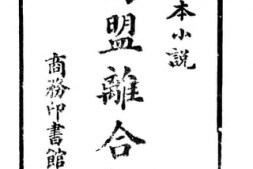 本小説
盟離合
商務印書館